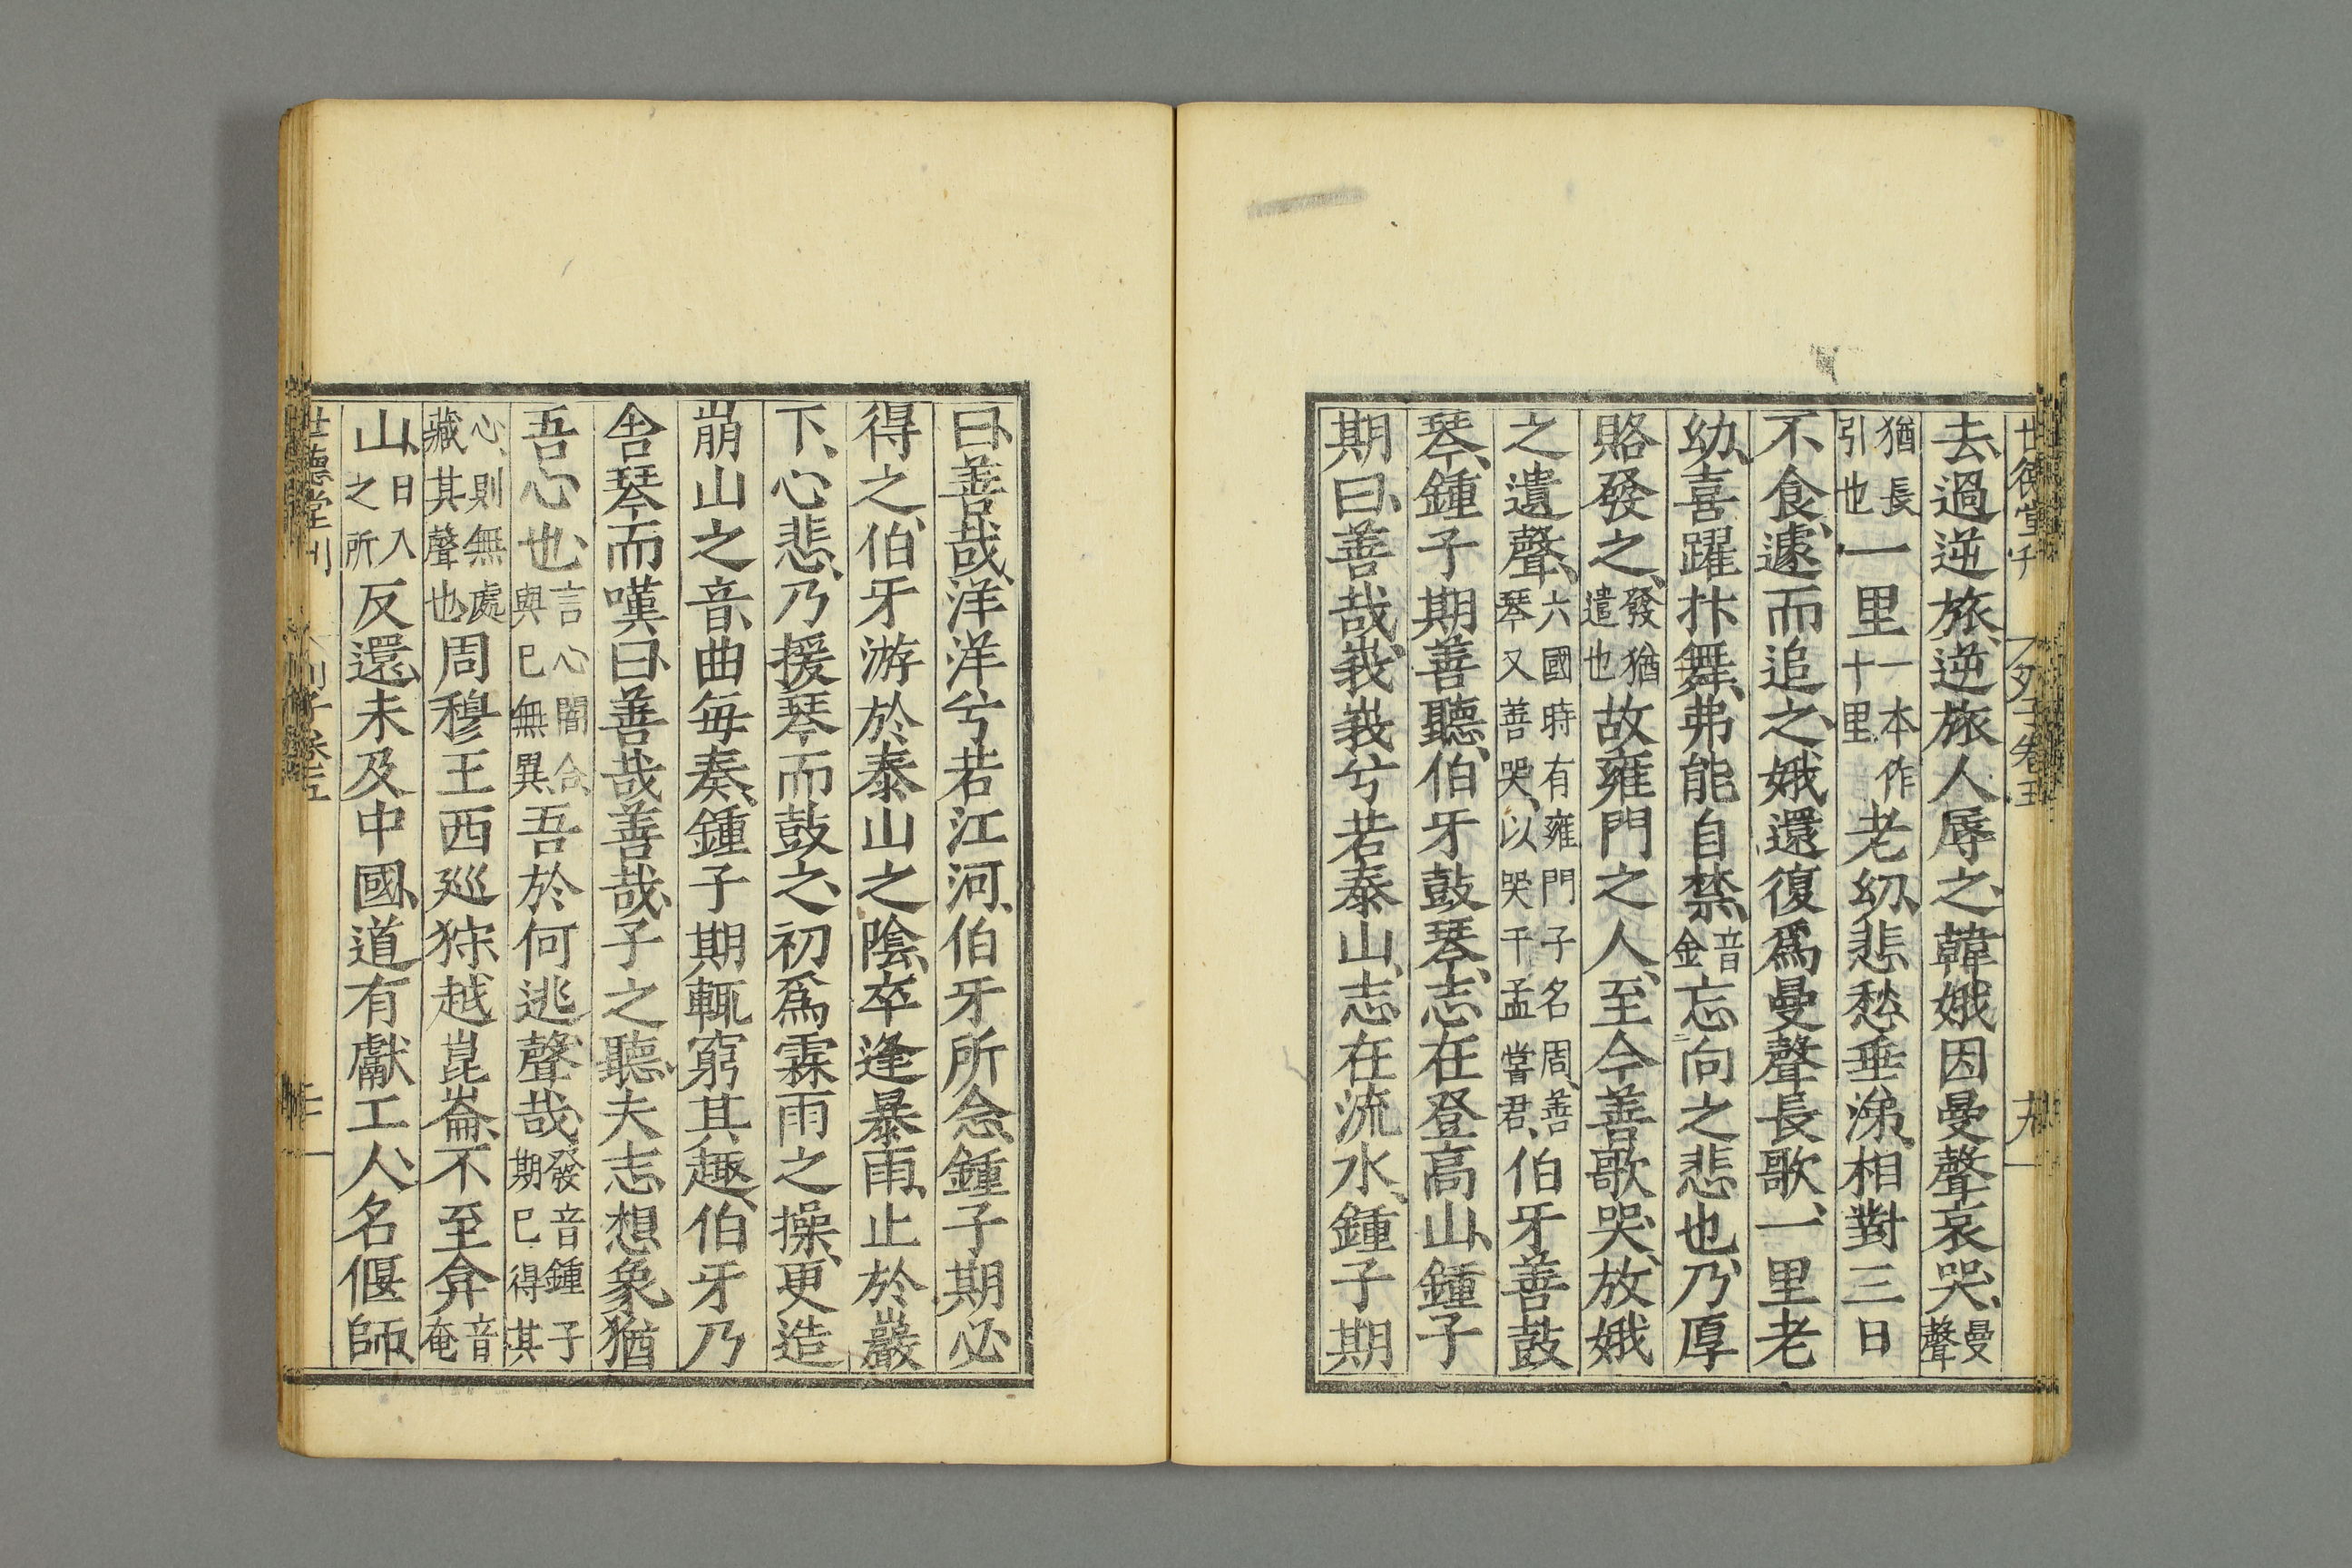 去、過逆旅、逆旅人辱之、韓娥因曼聲哀哭、曼聲
猶長引也一里一本作十里老幼、悲愁垂涕、相對三日
不食、遽而追之、娥還復爲曼聲長歌、一里老
幼、喜躍抃舞、弗能自禁、音金忘向之悲也、乃厚
賂發之、發猶遣也故雍門之人、至今善歌哭、放娥
之遺聲、六國時有雍門子名周、善琴又善哭、以哭干孟嘗君、伯牙善鼓
琴、鍾子期善聽、伯牙鼓琴、志在登高山、鍾子
期曰、善哉、峩峩兮若泰山、志在流水、鍾子期
曰、善哉、洋洋兮若江河、伯牙所念、鍾子期必
得之、伯牙游於泰山之陰、卒逢暴雨、止於巖
下、心悲、乃援琴而鼓之、初爲霖雨之操、更造
崩山之音、曲每奏、鍾子期輒窮其趣、伯牙乃
舍琴而嘆曰、善哉善哉、子之聽、夫志想象猶
吾心也、言心闇合、與己無異吾於何逃聲哉、發音鍾子期已得其
心、則無處藏其聲也、周穆王西巡狩越崑崙、不至弇音奄
山、日入之所反還、未及中國、道有獻工人、名偃師、
世德堂刊 列子卷五